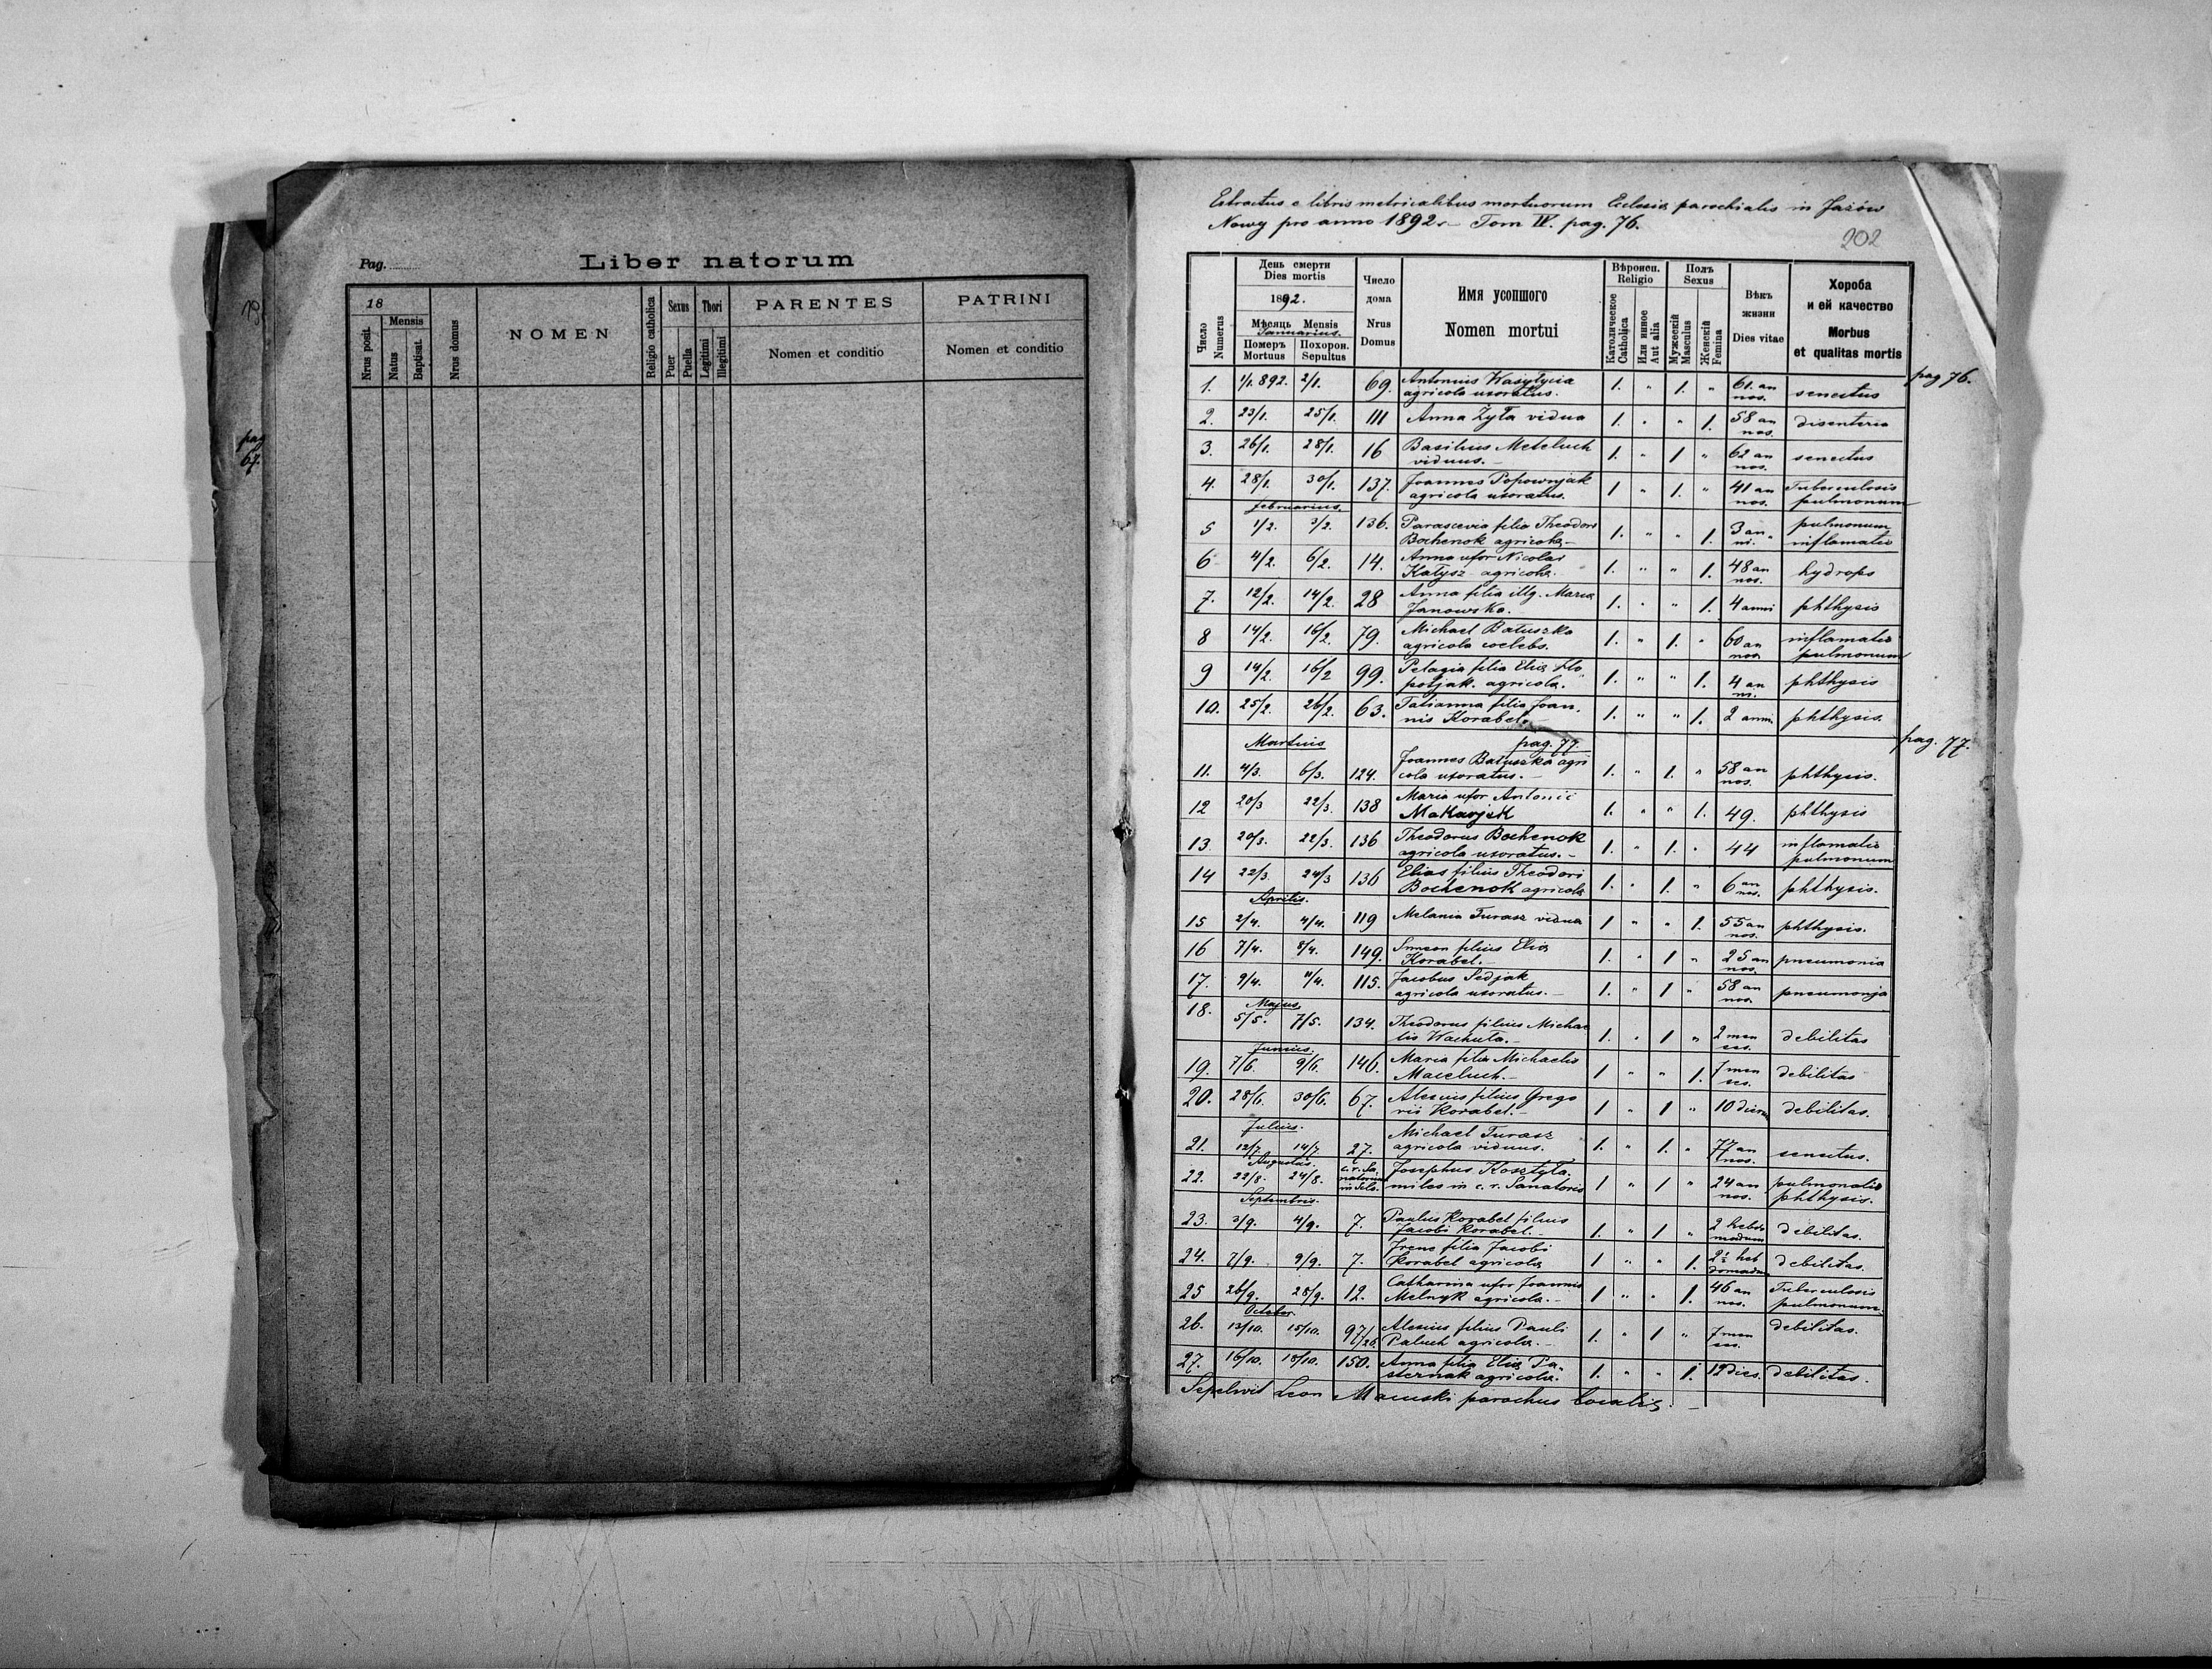 19
pag
67.
Pag.
Liber natorum
18
Nrus posit.
Mensis
Natus
Baptisat.
Nrus domus
NOMEN
Religio catholica
Sexus
Puer
Puella
Thori
Legitimi
Illegitimi
PARENTES
Nomen et conditio
PATRINI
Nomen et conditio
Extractus e libris metricalibus mortuorum Ecclesiæ parochialis in Jażów
Nowy pro anno 1892. – Tom IV. pag. 76.
202
Число
Numerus
День смерти
Dies mortis
1892.
Мѣсяць Mensis
Januarius.
Померъ
Mortuus
Похорон.
Sepultus
Число
дома
Nrus
Domus
Имя усопшого
Nomen mortui
Вѣроисп.
Religio
Католическое
Catholica
Или иное
Aut alia
Полъ
Sexus
Мужескій
Masculus
Женскій
Femina
Вѣкъ
жизни
Dies vitae
Хороба
и ей качество
Morbus
et qualitas mortis
pag 76.
1. 1/1. 892. 2/1. 69. Antonius Wasylycia 1. " 1. " 61. an
agricola uxoratus. nos. senectus
2. 23/1. 25/1. 111 Anna Zyła vidua 1. " " 1. 58 an disenteria
nos.
3. 26/1. 28/1. 16 Basilius Meteluch 1. " 1 " 62 an senectus
viduus. – nos.
4. 28/1. 30/1. 137. Joannes Popownjak 1 " 1. " 41 an Tuberculosis
agricola uxoratus. nos. pulmonum
februarius.
5 1/2. 3/2. 136. Parascevia filia Theodori 1. " " 1. 3 an pulmonum
Bochenok agricolæ – ni. inflamatio
6 4/2. 6/2. 14. Anna uxor Nicolai 1. " " 1. 48 an hydrops
Katysz agricolæ. nos.
7. 12/2. 14/2. 28 Anna filia illg. Mariæ 1. " " 1. 4 anni phthysis
Janowska.
8 14/2. 16/2. 79. Michael Batuszka 1. " 1. " 60 an inflamatio
agricola coelebs. nos. pulmonum
9 14/2. 16/2 99. Pelagia filia Eliæ Klo 1. " " 1. 4 an phthysis
potjak. agricola. ni.
10. 25/2. 26/2. 63. Tatianna filia Joan, 1. " " 1. 2 anni phthysis.
nis Korabel. –
Martius pag. 77 pag. 77.
11. 4/3. 6/3. 124. Joannes Batuszka agri 1. " 1. " 58 an phthysis.
cola uxoratus. – nos.
12 20/3 22/3. 138 Maria uxor Antonii 1. " " 1. 49. phthysis
Makarjak
13. 20/3. 22/3. 136 Theodorus Bochenok 1. " 1. " 44 inflamatio
agricola uxoratus. – pulmonum
14 22/3. 24/3 136 Elias filius Theodori 1. " 1. " 6 an phthysis.
Bochenok agricolæ nos.
Aprilis.
15 2/4. 4/4. 119 Melania Turasz vidua 1 " " 1. 55 an phthysis.
nos.
16 7/4. 8/4. 149. Simeon filius Eliæ 1. " 1 " 25 an pneumonia
Korabel. – nos.
17. 9/4. 11/4. 115. Jacobus Sedjak 1. " 1 " 58 an pneumonja
agricola uxoratus. – nos.
Majus
18. 5/5. 7/5. 134. Theodorus filius Michae 1. " 1 " 2 men debilitas
lis Wachuta. – ses.
Junius.
19. 7/6. 9/6. 146. Maria filia Michaelis 1 " " 1. 7 men debilitas
Maceluch. – ses.
20. 28/6. 30/6. 67. Alexius filius Grego 1 " 1 " 10 dierum debilitas.
rii Korabel. –
Julius.
21. 12/7. 14/7. 27. Michael Turasz 1. " 1. " 77 an senectus.
agricola viduus. nos.
Augustus.
22. 22/8. 24/8. Josephus Kosztyła. 1 " 1 " 24 an pulmonalis
miles in c. r. Sanatorio nos. phthysis.
Septembris.
23. 3/9. 4/9. 7. Paulus Korabel filius 1. " 1 " 2 hebdo debilitas.
Jacobi Korabel. – madum
24. 7/9. 9/9. 7. Irene filia Jacobi 1 " " 1. 2½ heb debilitas.
Korabel agricolæ domadum
25 26/9. 28/9. 12. Catharina uxor Joannis 1 " " 1. 46 an Tuberculosis
Melnyk agricola. – nos. pulmonum.
October.
26. 13/10. 15/10. 97/26. Alexius filius Pauli 1. " 1 " 7 men debilitas.
Paluch agricolæ. – ses.
27. 16/10. 18/10. 150. Anna filia Eliæ Pa, 1. " " 1. 12 dies. debilitas.
sternak agricolæ.
Sepelivit Leon Macuski parochus localis. –